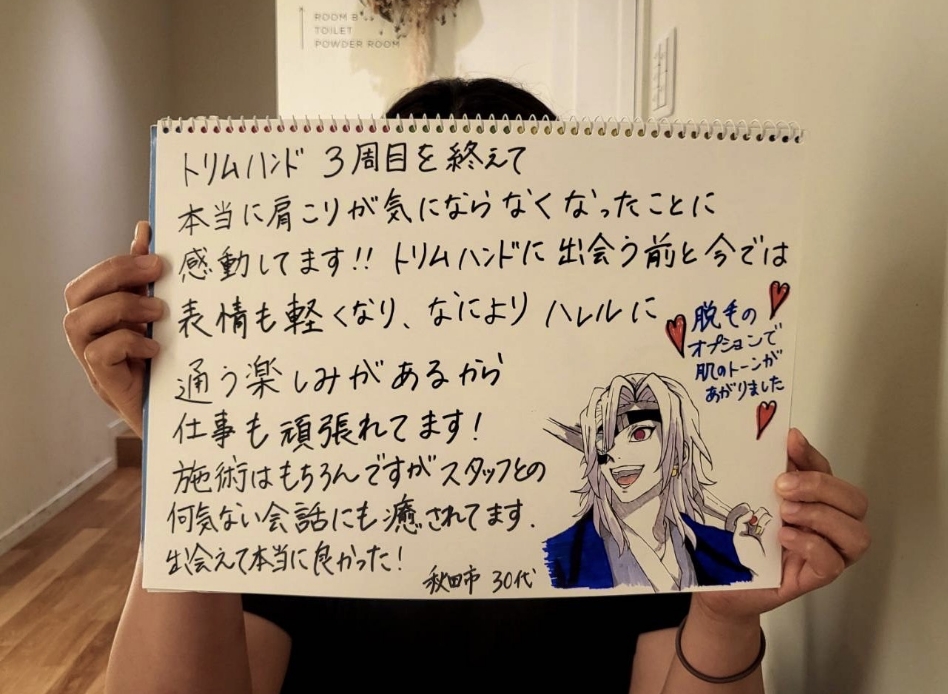 ROOM B
TOILET
POWDER ROOM
トリムハンド 3周目を終えて
本当に肩こりが気にならなくなったことに
感動してます!! トリムハンドに出会う前と今では
表情も軽くなり、なにより ハレルに
通う楽しみがあるから
仕事も頑張れてます!
施術はもちろんですがスタッフとの
何気ない会話にも癒されてます.
出会えて本当に良かった!
秋田市 30代
脱毛の
オプションで
肌のトーンが
あがりました